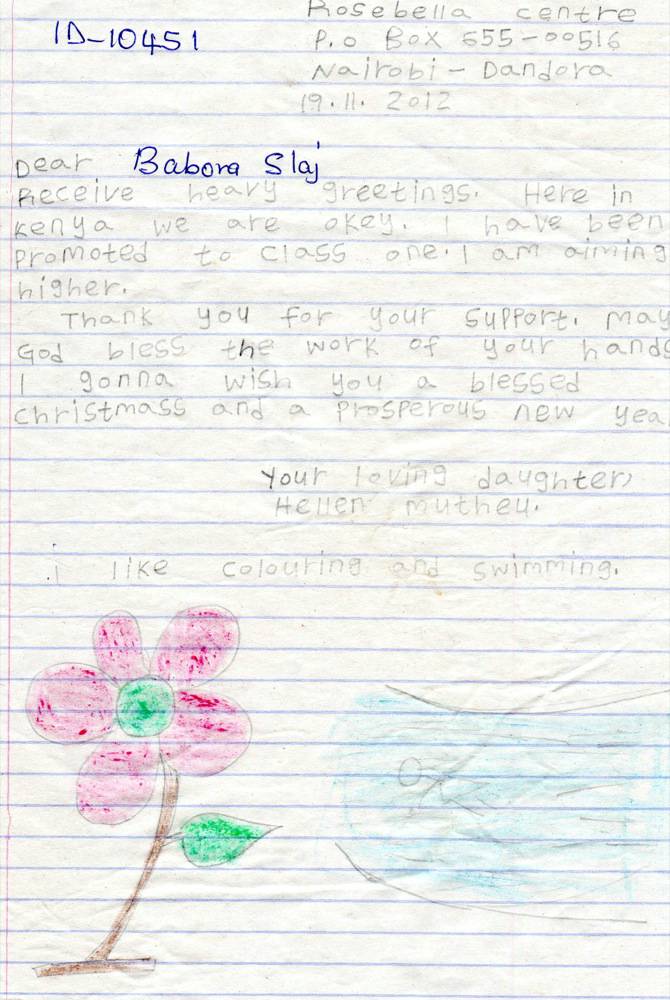 Rosebella centre
ID-10451
P.o Box 655-00516
Nairobi - Dandora
19.11. 2012
Dear Babora Slaj
Receive heavy greetings. Here in
kenya we are okey. I have been
promoted to class one. I am aiming
higher.
Thank you for your support. may
God bless the work of your hands
I gonna wish you a blessed
christmass and a prosperous new yea
Your loving daughter,
Hellen mutheu.
i like colouring and swimming.